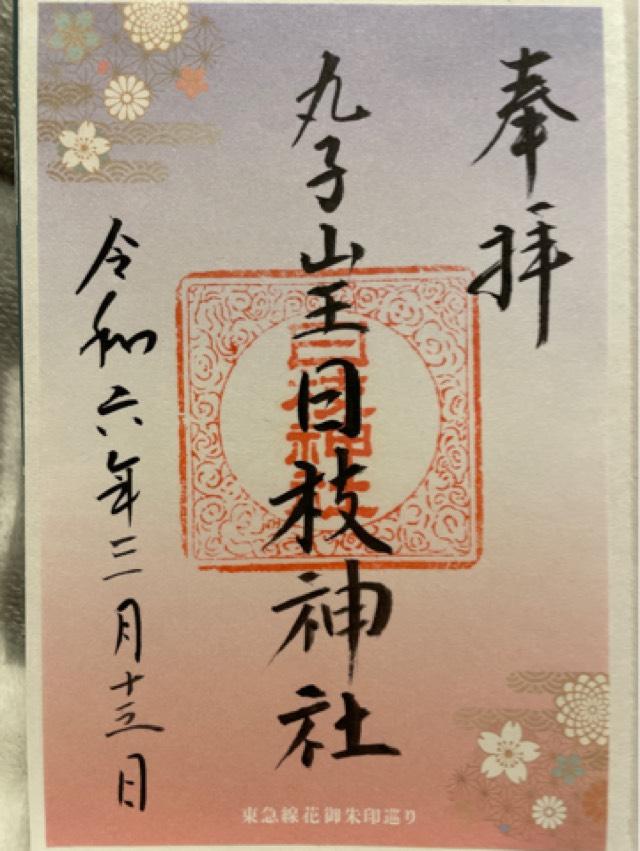 奉拝
丸子山王日枝神社
日枝神社
令和六年三月十三日
東急線花御朱印巡り